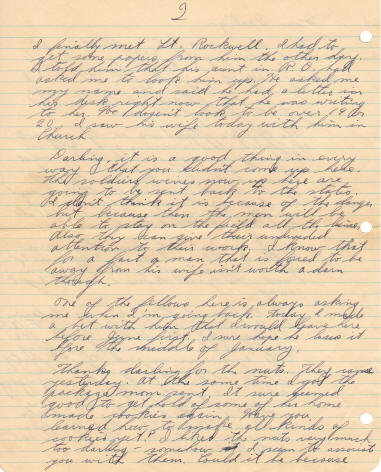 2
I finally met Lt. Rockwell. I had to
get some papers from him the other day.
I told him that his aunt in R.O. had
asked me to look him up. He asked me
my name and said he had a letter in
his desk right now that he was writing
to her. He doesn't look to be over 19 or
20. I saw his wife today with him in
Church
Darling, it is a good thing in every
way that you didn't come up here.
The soldiers wives now up here are
going to be sent back to the states.
I don't think it is because of the danger
but because then the men will be
able to stay on the all the time.
Also they can give their undivided
attention to their work. I know that
for a fact a man that is forced to be
away from his wife isn't worth a darn
though.
One of the fellows here is always asking
me when I'm going back. Today I made
a bet with him that I would leave here
before June first. I sure hope he loses it
before the middle of January.
Thanks darling for the nuts. They came
yesterday. At the same time I got the
package mom sent. It sure seemed
good to get hold of some of his home
made cookies again. Have you
learned how to make all kinds of
cookies yet? I liked the nuts very much
too darling - somehow I seem to associate
you with them. Could it be because